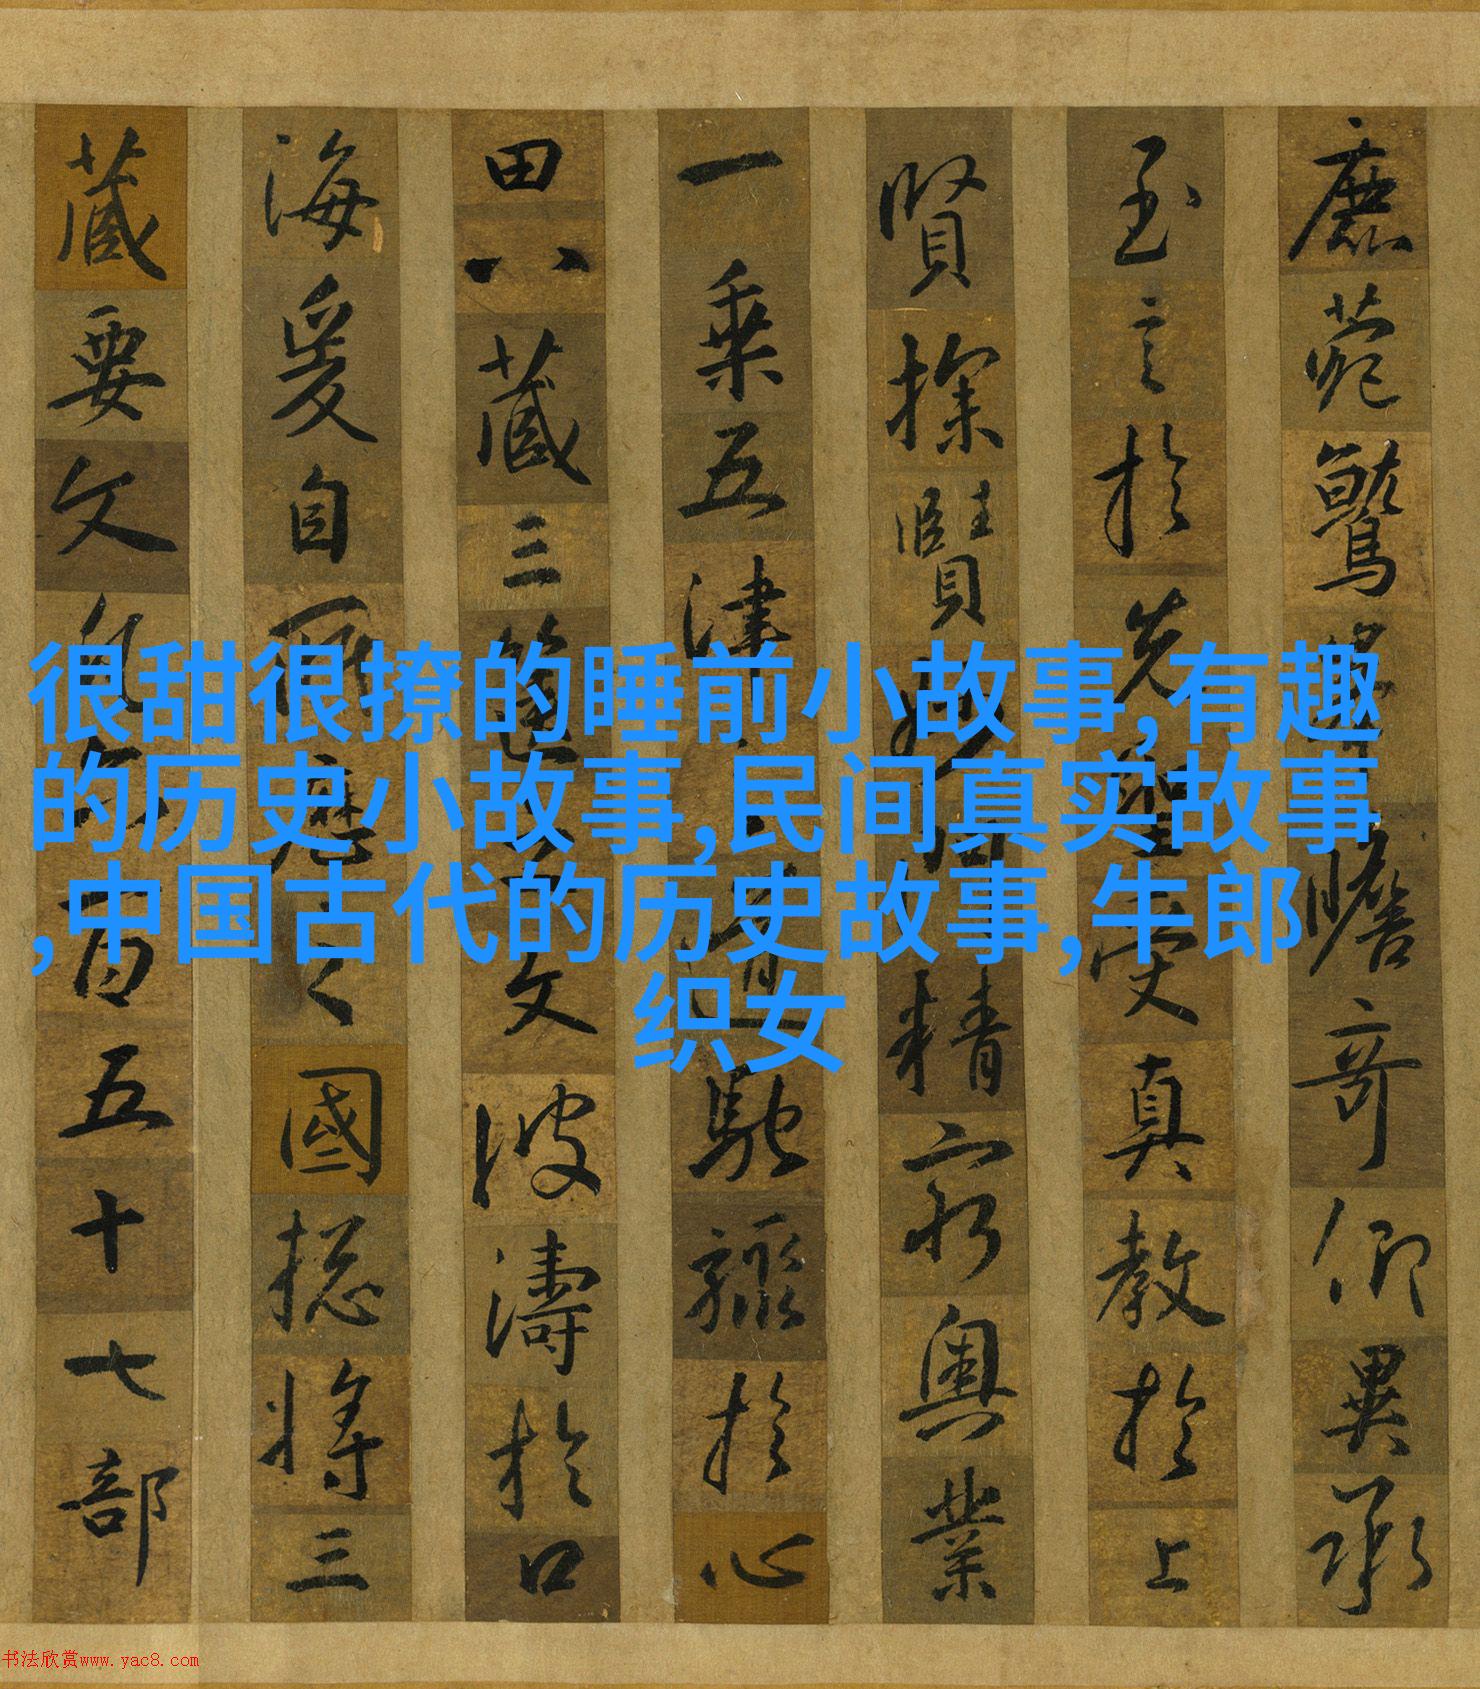 很甜很撩的睡前小故事,有趣
的历史小故事,民间真实故事
,中国古代的历史故事,牛郎
织女
鹿苑鷲峯瞻奇仰異承
至言於先聖受真教於上
賢探賾妙門精窮奧業
一乘五律之道馳驟於心
田八藏三篋之文波濤於口
海爰自所歷之國捴將三
藏要文凡六百五十七部
书法欣赏www.yac8.com